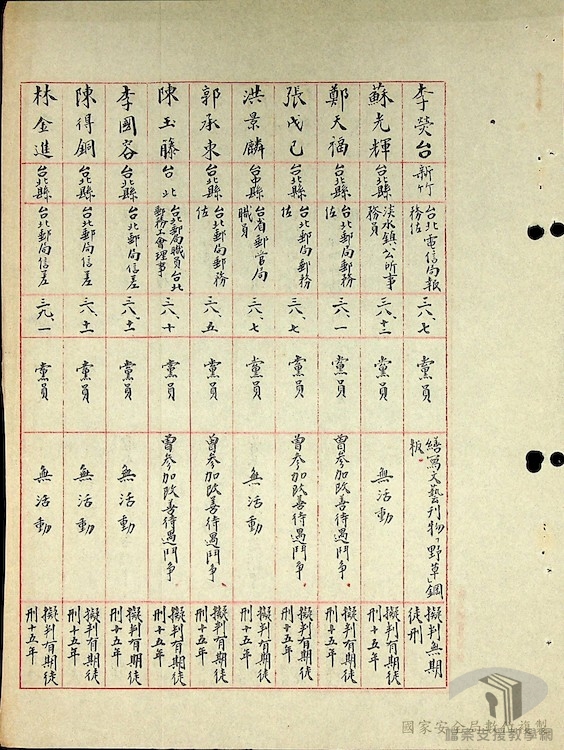 李熒台
新竹
台北電信局報
務佐
三八、七
黨員
繕寫文藝刊物「野草」鋼
板
擬判無期
徒刑
蘇光輝
台北縣
淡水鎮公所事
務員
三八、十二
黨員
無活動
擬判有期徒
刑十五年
鄭天福
台北縣
台北郵局郵務
佐
三八、一
黨員
曾參加改善待遇鬥爭
擬判有期徒
刑十五年
張戊己
台北縣
台北郵局郵務
佐
三八、七
黨員
曾參加改善待遇鬥爭
擬判有期徒
刑十五年
洪景麟
台中縣
台省郵管局
職員
三八、七
黨員
無活動
擬判有期徒
刑十五年
郭承東
台北縣
台北郵局郵務
佐
三八、五
黨員
曾參加改善待遇鬥爭
擬判有期徒
刑十五年
陳玉藤
台北
台北郵局職員台北
郵務工會理事
三八、十
黨員
曾參加改善待遇鬥爭
擬判有期徒
刑十五年
李國容
台北縣
台北郵局信差
三八、十一
黨員
無活動
擬判有期徒
刑十五年
陳得銅
台北縣
台北郵局信差
三八、十一
黨員
無活動
擬判有期徒
刑十五年
林金進
台北縣
台北郵局信差
三九、一
黨員
無活動
擬判有期徒
刑十五年
國家安全局數位複製
檔案支援教學網